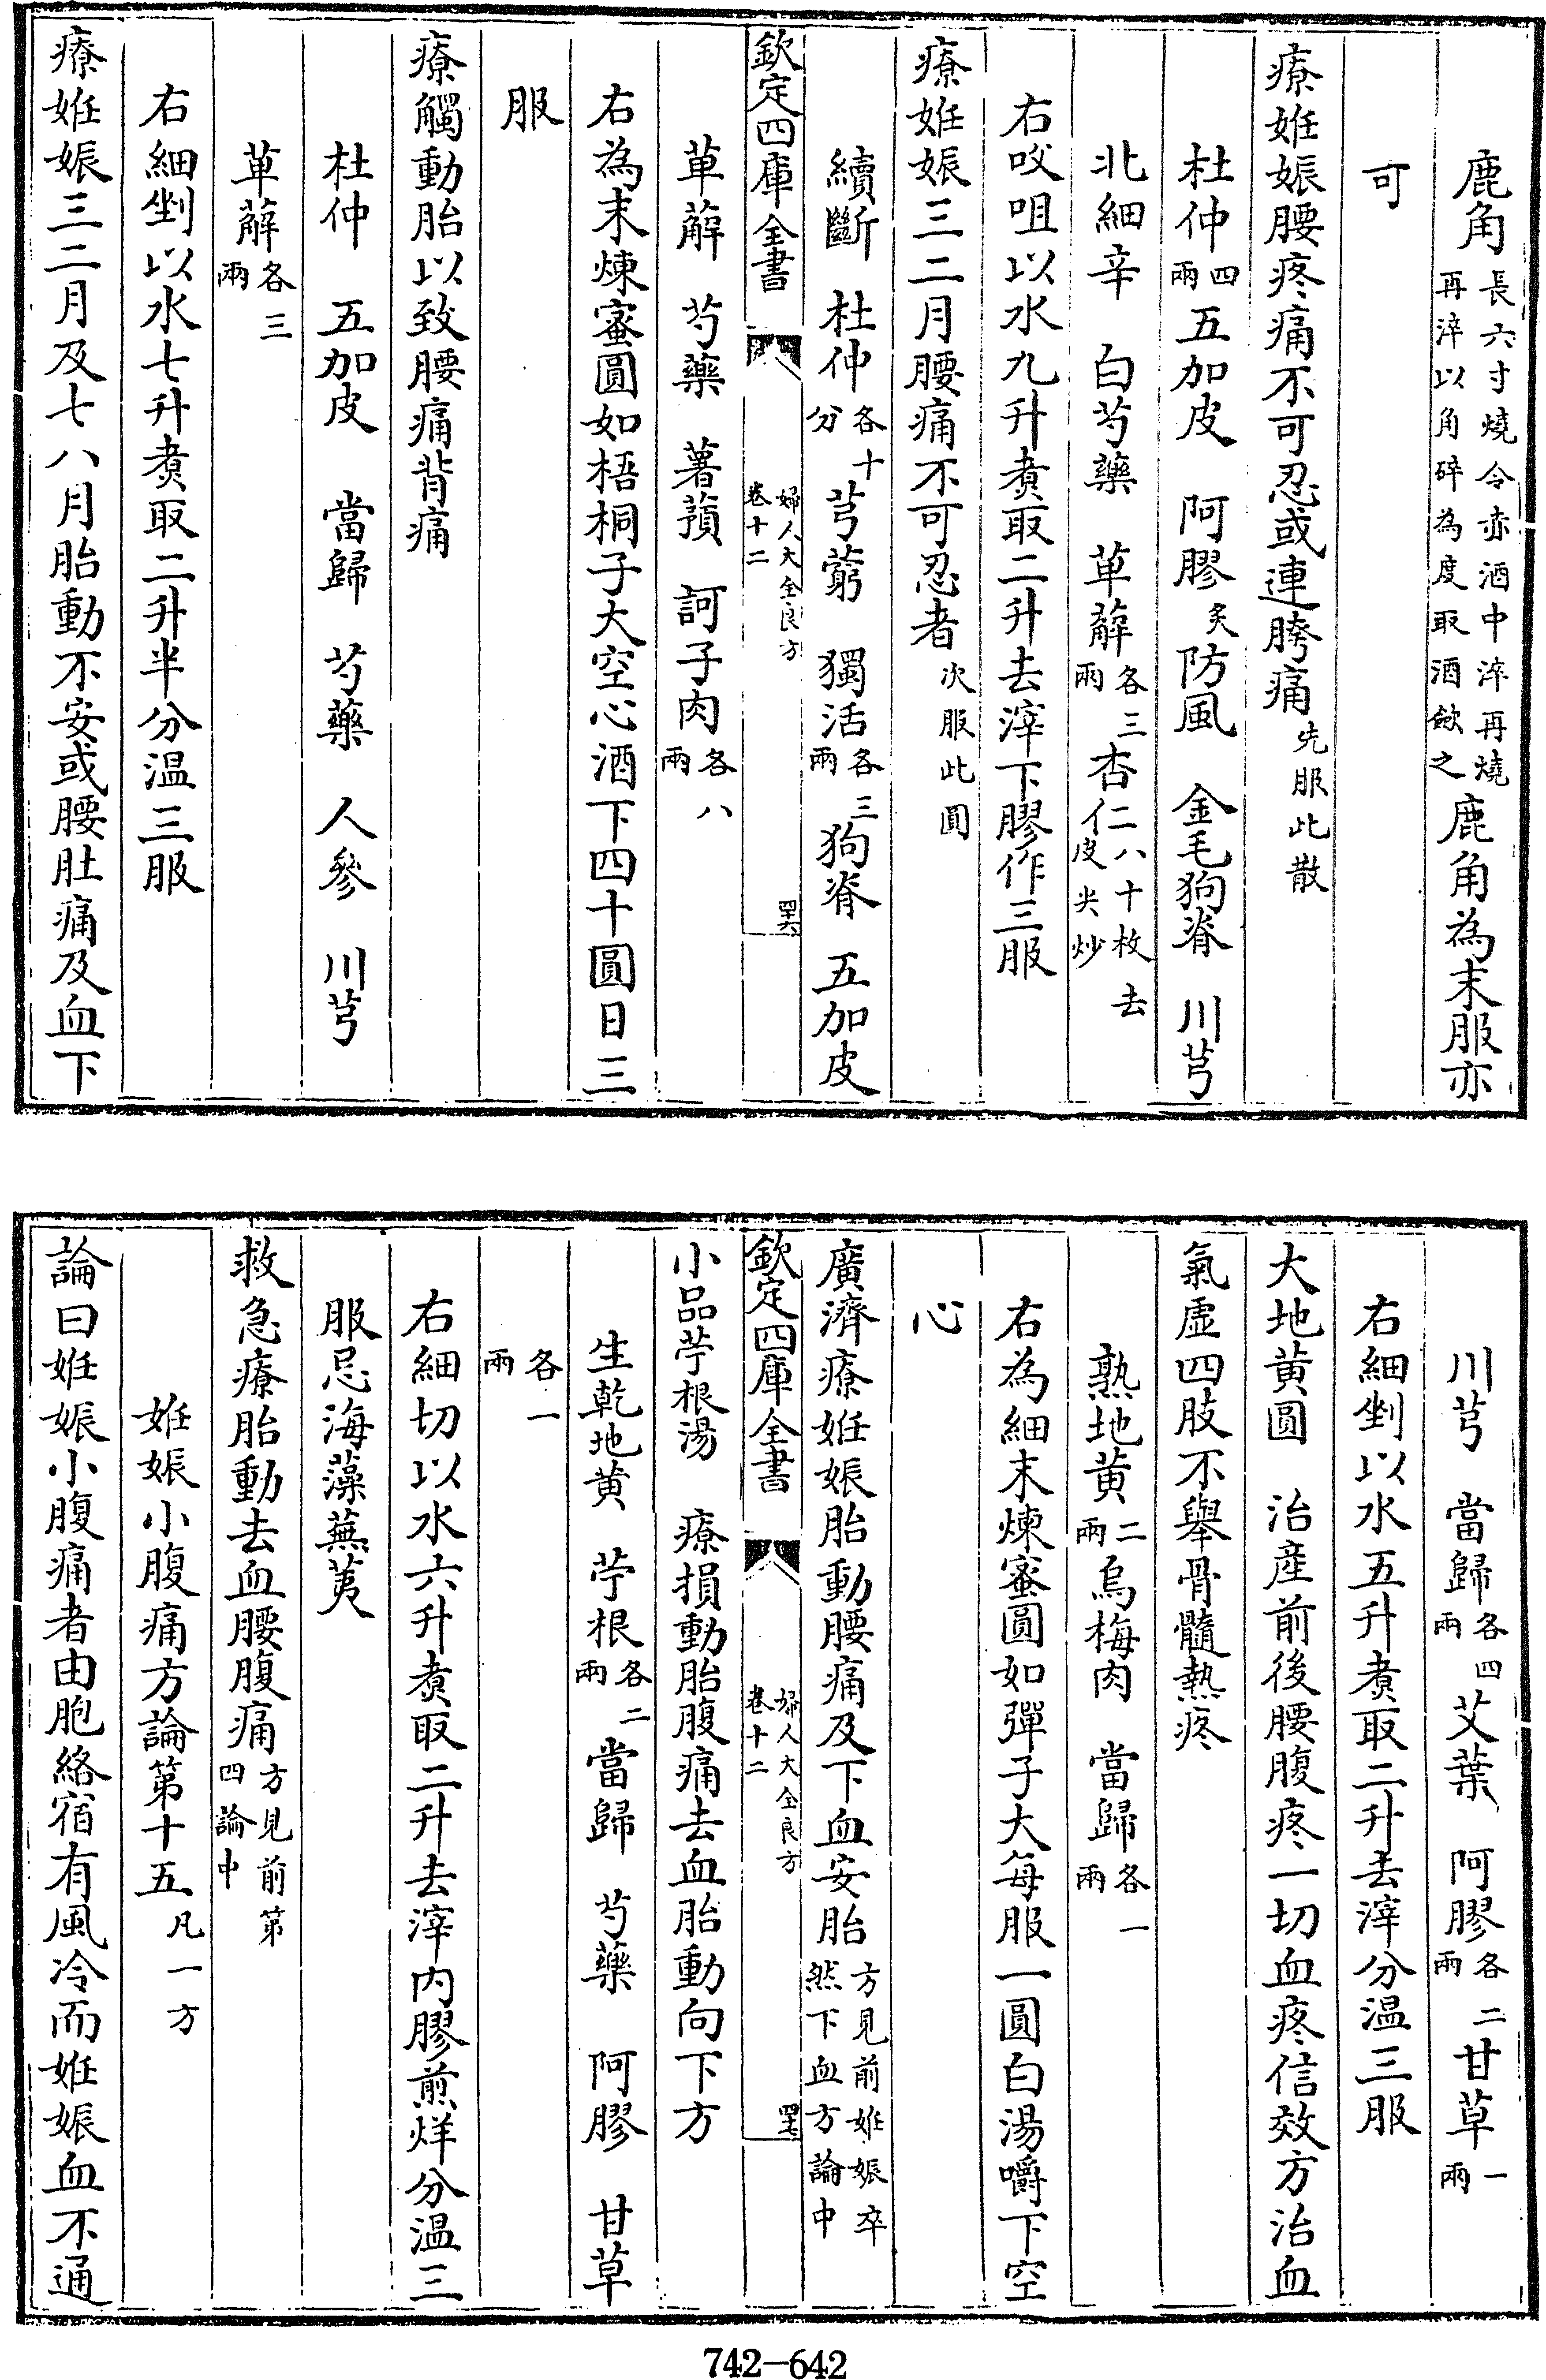 鹿角長六寸燒令赤酒中淬再燒再淬以角碎為度取酒飲之鹿角為末服亦
可
療姙娠腰疼痛不可忍或連胯痛先服此散
杜仲四兩五加皮 阿膠炙防風 金毛狗脊 川芎
北細辛 白芍藥 萆薢各三兩杏仁二八十枚去皮尖炒
右㕮咀以水九升煑取二升去滓下膠作三服
療姙娠三二月腰痛不可忍者次服此圓
續斷 杜仲各十分芎藭 獨活各三兩狗脊 五加皮
欽定四庫全書 婦人大全良方卷十二 四六
萆薢 芍藥 薯蕷 訶子肉各八兩
右為末煉蜜圓如梧桐子大空心酒下四十圓日三
服
療觸動胎以致腰痛背痛
杜仲 五加皮 當歸 芍藥 人參 川芎
萆薢各三兩
右細剉以水七升煑取二升半分温三服
療姙娠三二月及七八月胎動不安或腰肚痛及血下
川芎 當歸各四兩艾葉 阿膠各二兩甘草一兩
右細剉以水五升煑取二升去滓分温三服
大地黄圓 治産前後腰腹疼一切血疼信效方治血
氣虛四肢不舉骨髓熱疼
熟地黄二兩烏梅肉 當歸各一兩
右為細末煉蜜圓如彈子大每服一圓白湯嚼下空
心
廣濟療姙娠胎動腰痛及下血安胎方見前姙娠卒然下血方論中
欽定四庫全書 婦人大全良方卷十二 四七
小品苧根湯 療損動胎腹痛去血胎動向下方
生乾地黄 苧根各二兩當歸 芍藥 阿膠 甘草
各一兩
右細切以水六升煑取二升去滓内膠煎烊分温三
服忌海藻蕪荑
救急療胎動去血腰腹痛方見前第四論中
姙娠小腹痛方論第十五凡一方
論曰姙娠小腹痛者由胞絡宿有風冷而姙娠血不通
742-642